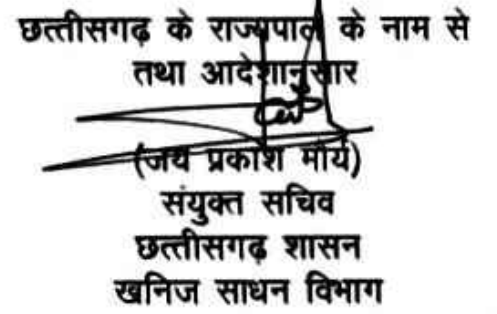 छत्तीसगढ़ के राज्यपाल के नाम से
तथा आदेशानुसार
(जय प्रकाश मौर्य)
संयुक्त सचिव
छत्तीसगढ़ शासन
खनिज साधन विभाग